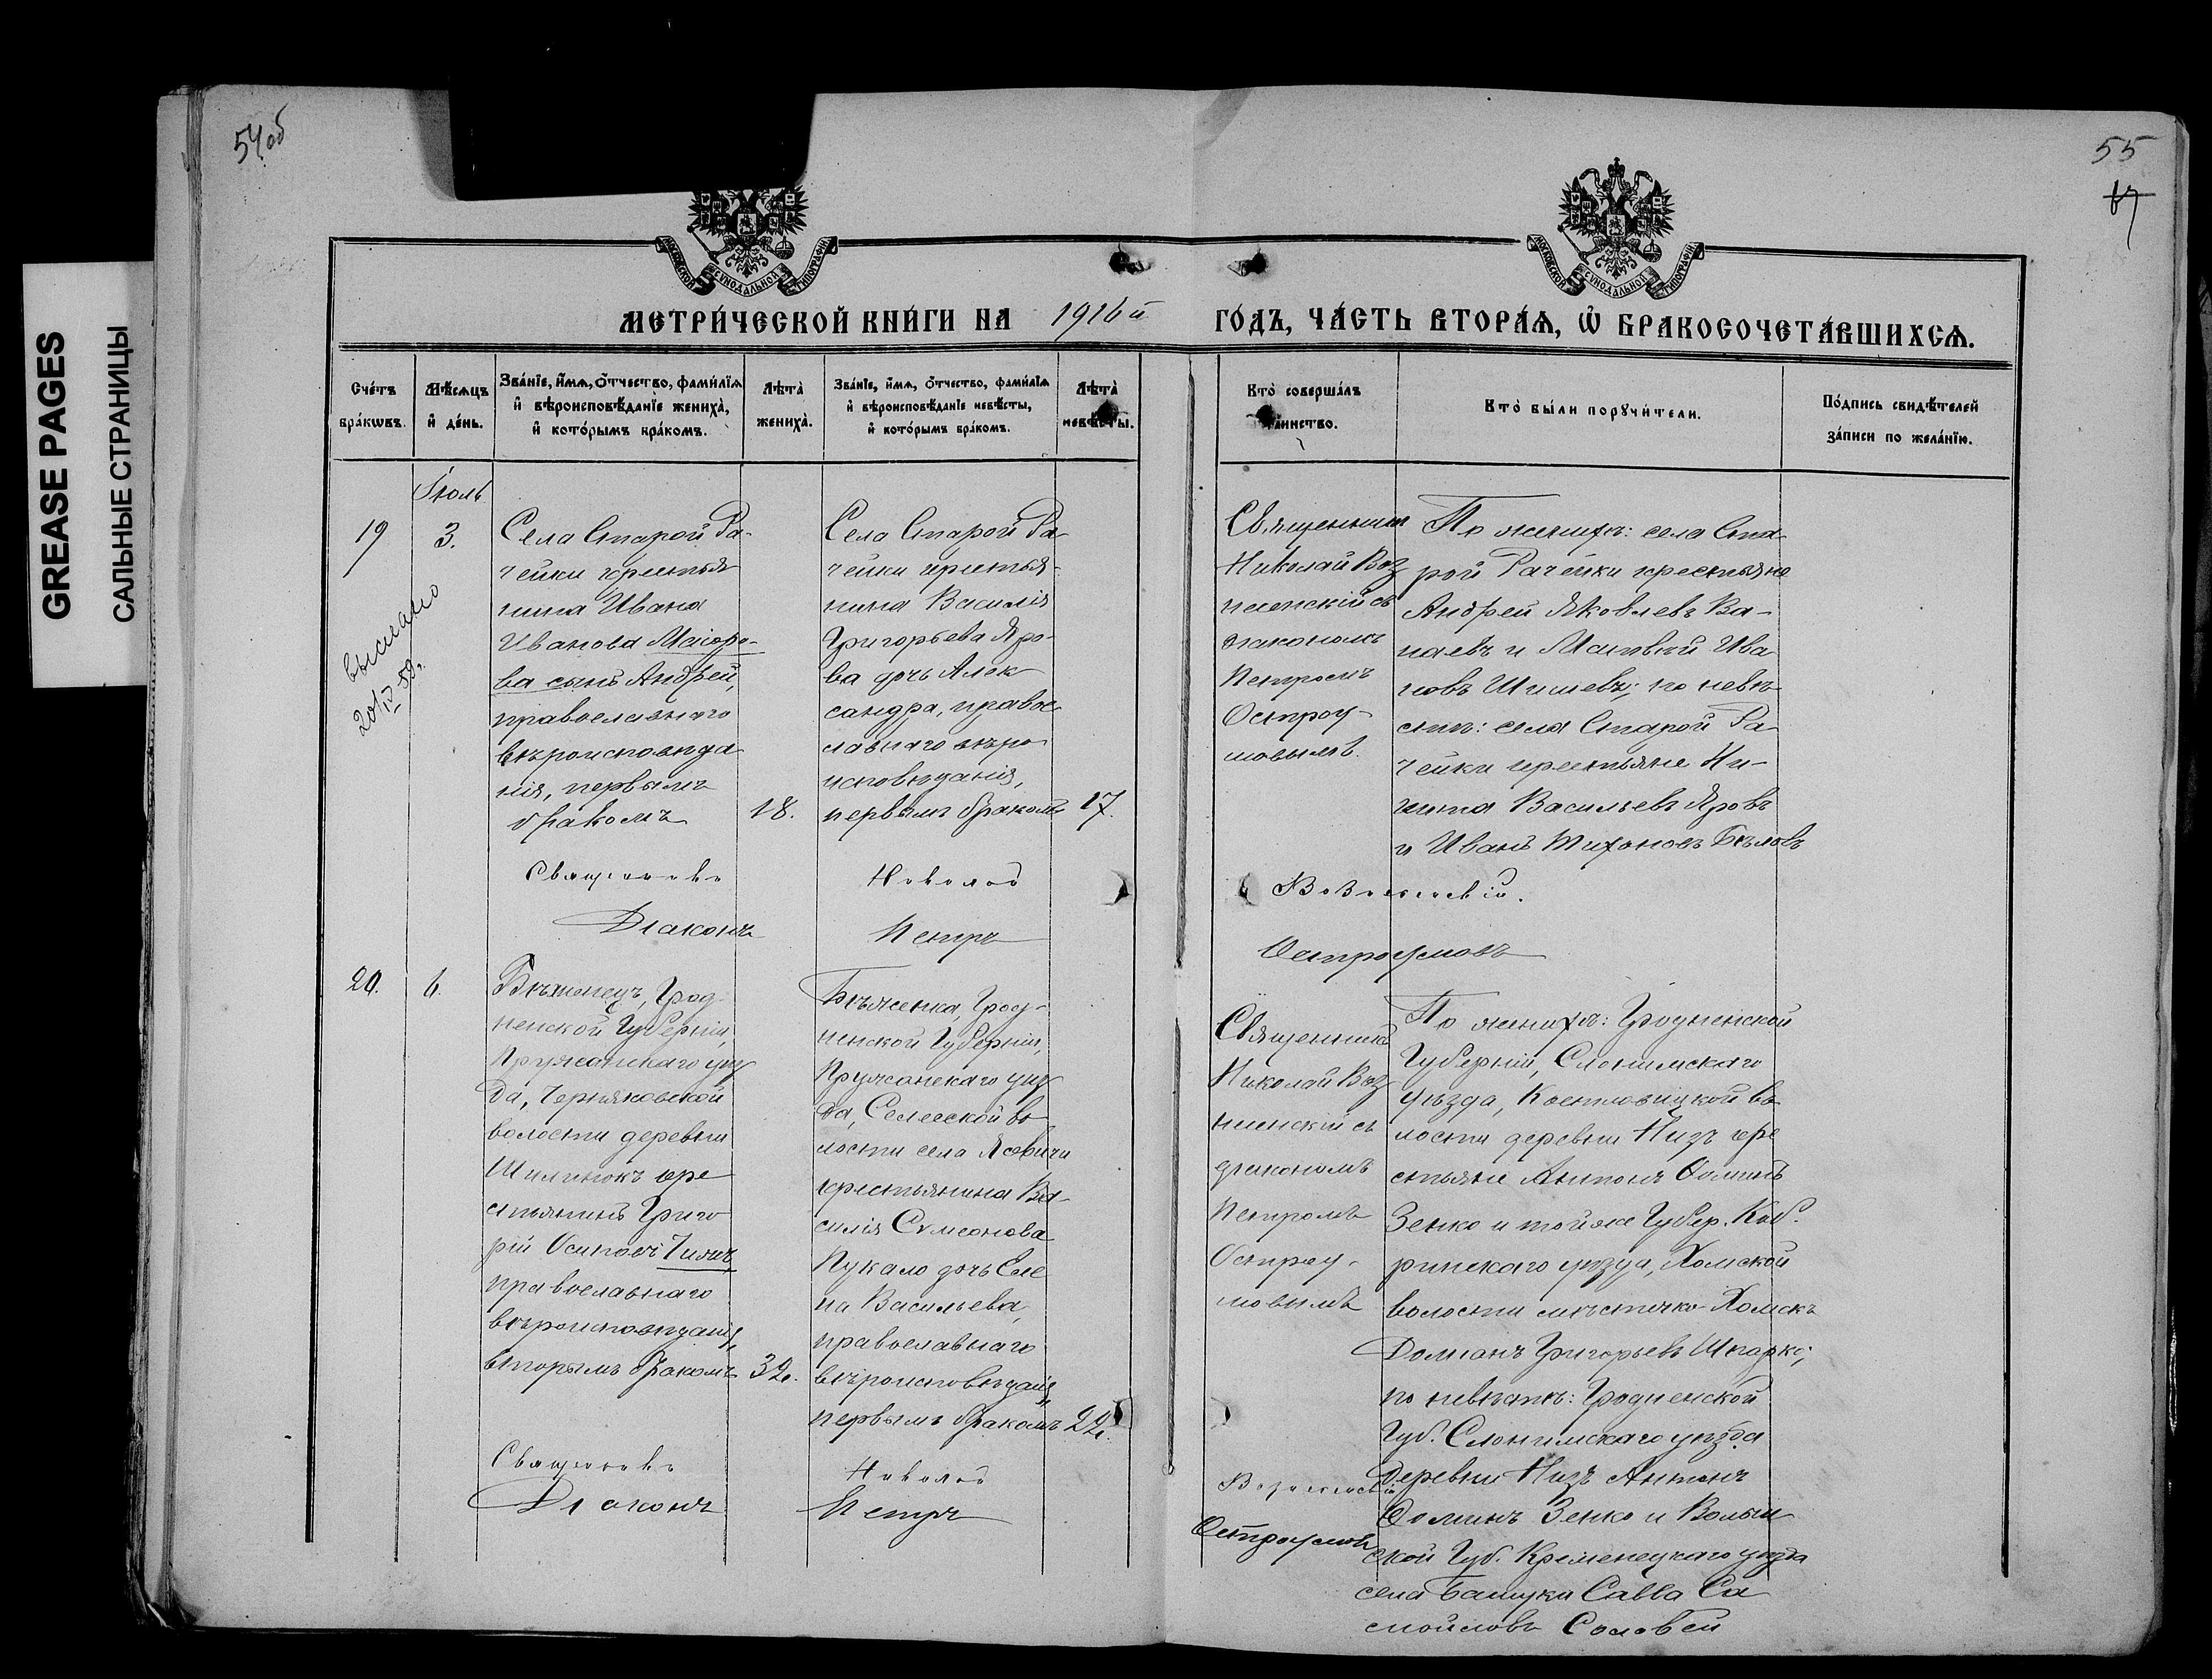 GREASE PAGES
САЛЬНЫЕ СТРАНИЦЫ
54об
55
МОСКОВСКОЙ СѴНОДАЛЬНОЙ ТИПОГРАФІИ
МОСКОВСКОЙ СѴНОДАЛЬНОЙ ТИПОГРАФІИ
МЕТРИ́ЧЕСКОЙ КНИ́ГИ НА 1916й ГО́ДЪ, ЧА́СТЬ ВТОРА́Ѧ, Ѽ БРАКОСОЧЕТА́ВШИХСѦ.
Сче́тъ
бра́кѡвъ.
Мѣ́сѧцъ
и҆ де́нь.
Зва́нїе, и҆́мѧ, ѻ҆́тчество, фами́лїѧ
и҆ вѣроисповѣ́данїе жениха̀,
и҆ кото́рымъ бра́комъ.
Лѣ̀та
жениха̀.
Зва́нїе, и҆́мѧ, ѻ҆́тчество, фами́лїѧ
и҆ вѣроисповѣ́данїе невѣ́сты,
и҆ кото́рымъ бра́комъ.
Лѣ̀та
невѣ́сты.
Кто̀ соверша́лъ
таинство.
Кто̀ бы́ли порꙋчи́тели.
По́дпись свидѣ́телей
за́писи по жела́нїю.
Іюль
19
3.
выслано
20/IV 59г.
Села Старой Ра-
чейки крестья
нина Ивана
Иванова Маіоро-
ва сынъ Андрей,
православнаго
вѣроисповѣда
нія, первымъ
бракомъ
18.
Села Старой Ра-
чейки крестья-
нина Василія
Григорьева Яро-
ва дочь Алек
сандра, правос
лавнаго вѣро
исповѣданія,
первымъ бракомъ
17.
Священникъ
Николай Воз
несенскій съ
діакономъ
Петромъ
Остроу-
мовымъ.
По женихѣ: села Ста
рой Рачейки крестьяне
Андрей Яковлевъ Ва-
наевъ и Матвѣй Ива
новъ Шишевъ; по невѣ
стѣ: села Старой Ра
чейки крестьяне Ни-
кита Васильевъ Яровъ
и Иванъ Тихоновъ Бѣловъ
Священникъ Николай Вознесенскій.
Діаконъ Петръ Остроумовъ
20.
6.
Бѣженецъ, Грод
ненской Губерніи,
Пружанскаго уѣз
да, Черняковской
волости деревни
Шилинокъ кре
стьянинъ Григо
рій Осиповъ
православнаго
вѣроисповѣданія,
вторымъ бракомъ
32.
Бѣженка, Грод-
ненской Губерніи,
Пружанскаго уѣз
да, Селецкой во
лости села Ясевичи
крестьянина Ва-
силія Самсонова
Пукало дочь Еле
на Васильева,
православнаго
вѣроисповѣданія,
первымъ бракомъ
22.
Священникъ
Николай Воз
несенскій съ
діакономъ
Петромъ
Остроу-
мовымъ
По женихѣ: Гродненской
Губерніи, Слонимскаго
уѣзда, Костровицкой во
лости деревни Низъ кре
стьяне Антонъ Ѳоминъ
Зенко и тойже Губер. Коб.
ринскаго уѣзда, Хомской
волости мѣстечко Хомскъ
Доміанъ Григорьевъ Шпарко;
по невѣстѣ: Гродненской
Губ. Слонимскаго уѣзда
деревни Низъ Антонъ
Ѳоминъ Зенко и Волын
ской Губ. Кременецкаго уѣзда
села Башуки Савва Са
мойловъ Соловей
Священникъ Николай Вознесенскій
Діаконъ Петръ Остроумовъ